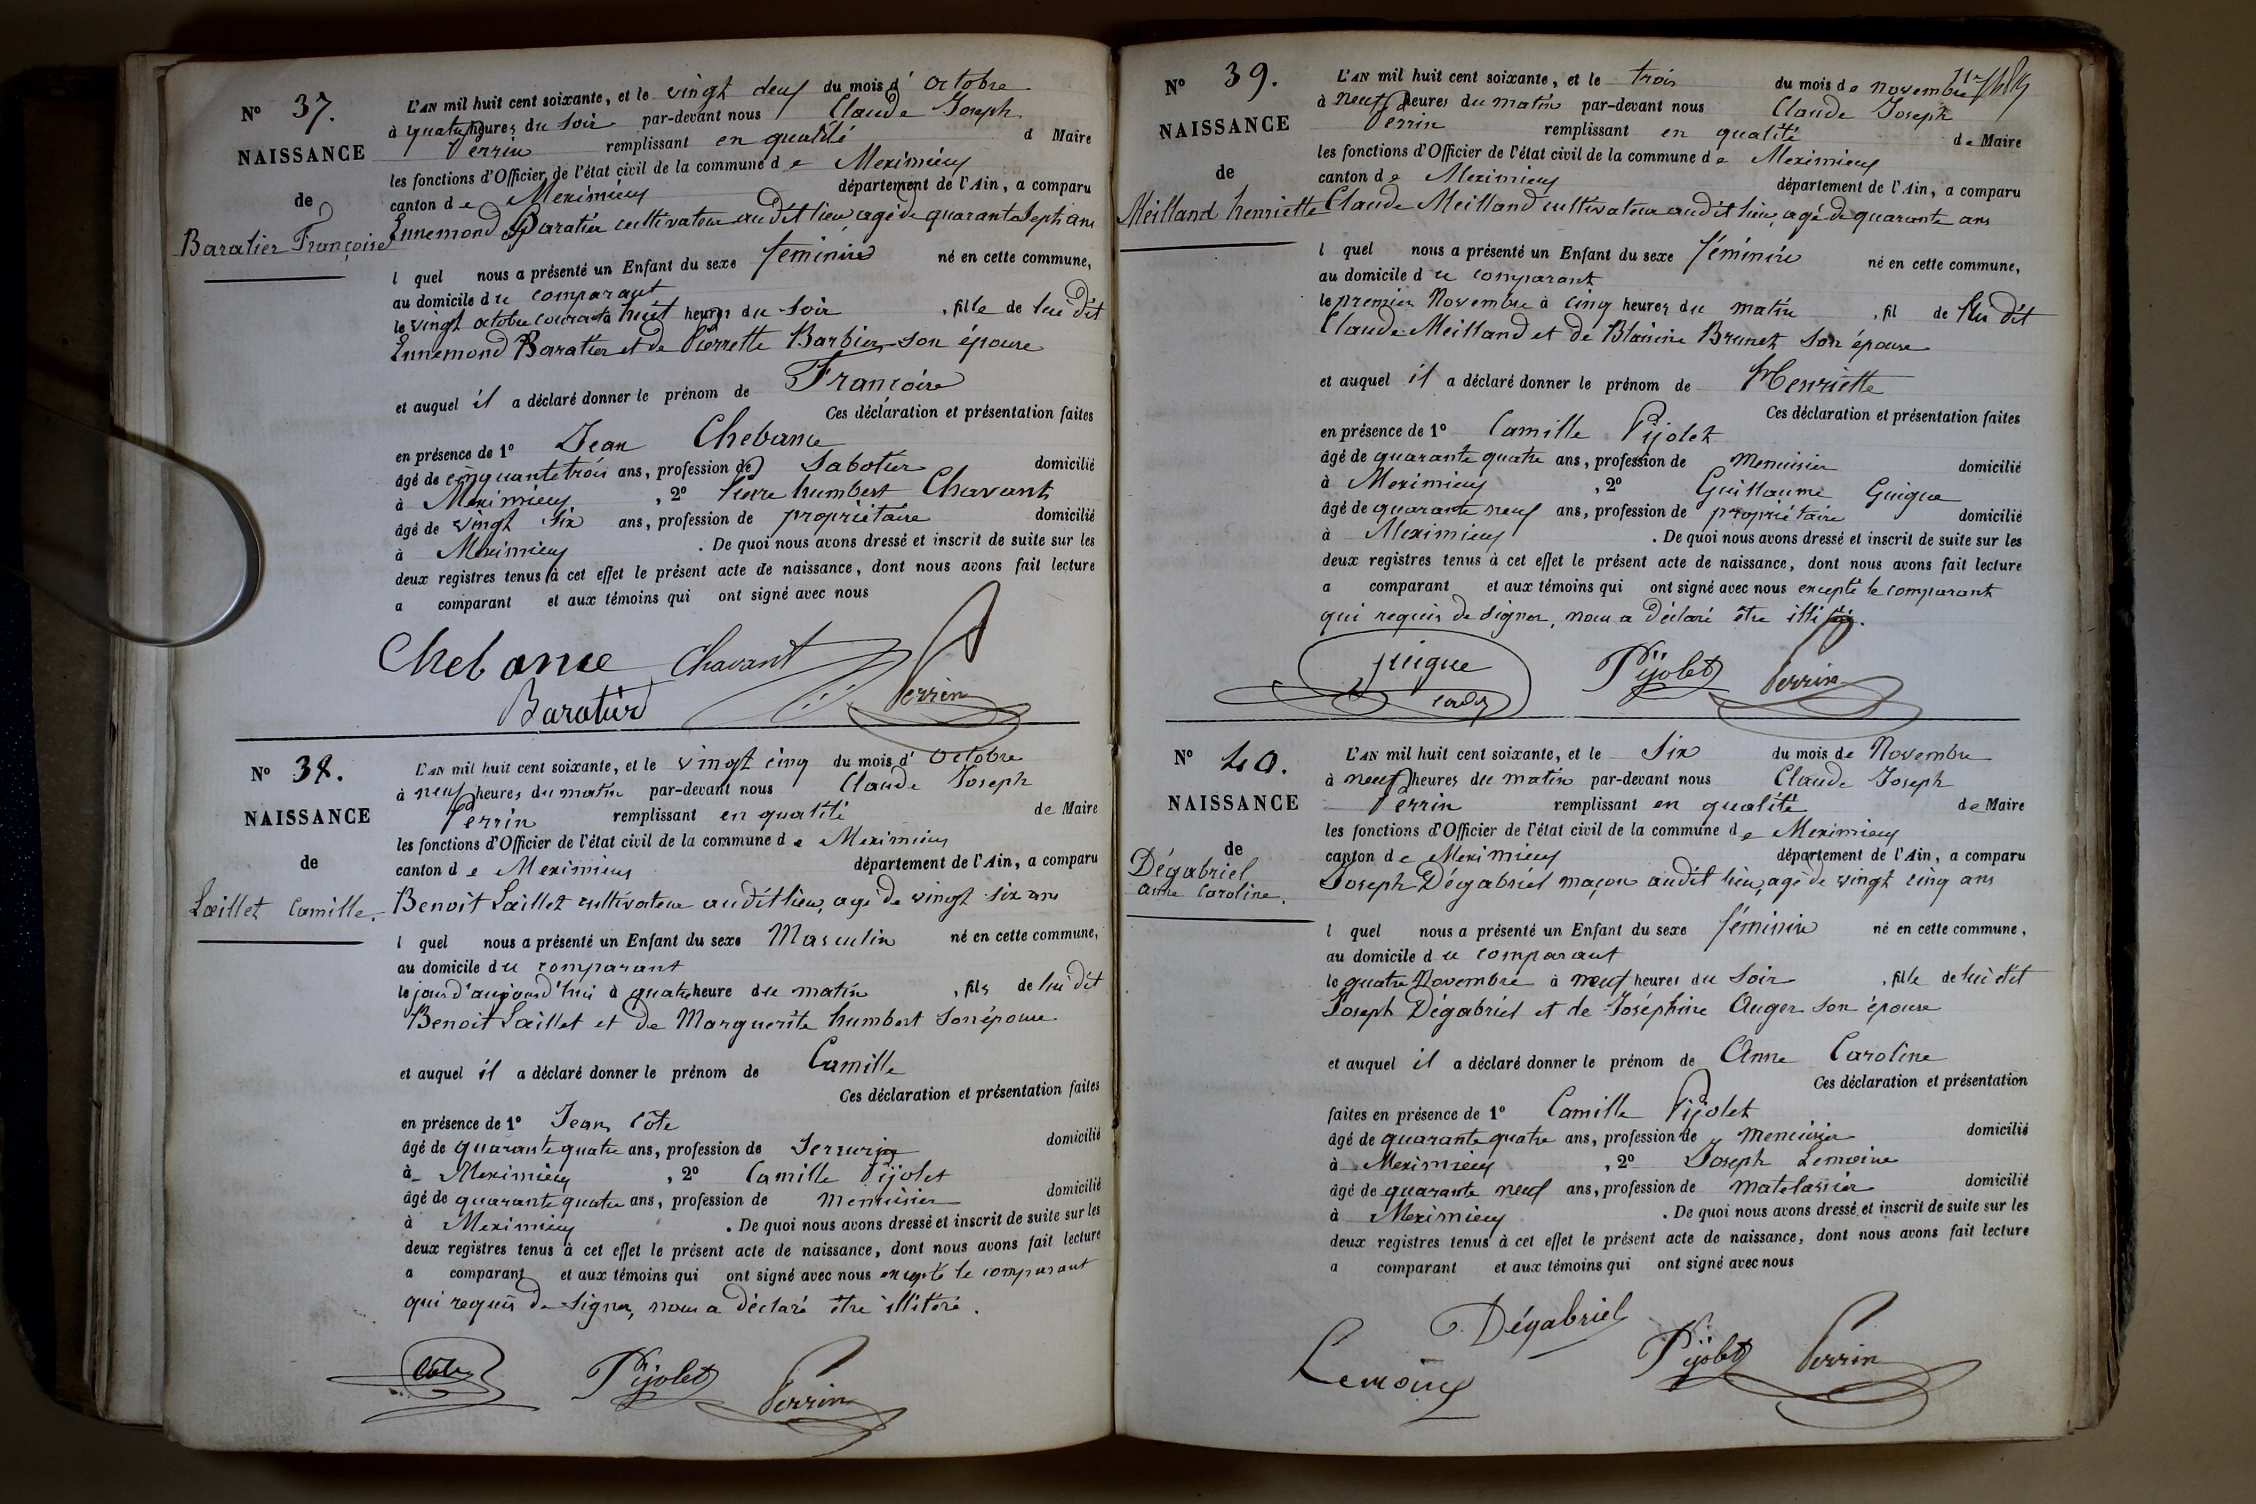 N° 37.
NAISSANCE
de
Baratier Françoise
L'AN mil huit cent soixante, et le vingt deux du mois d' octobre
à quatre heures du soir par-devant nous Claude Joseph
Perrin remplissant en qualité d Maire
les fonctions d'Officier de l'état civil de la commune de Meximieux
canton de Meximieux département de l'Ain, a comparu
Ennemond Baratier cultivateur audit lieu, agé de quarante sept ans
l quel nous a présenté un Enfant du sexe féminin né en cette commune,
au domicile du comparant
le vingt octobre courant à huit heures du soir, fille de lui dit
Ennemond Baratier et de Pierrette Barbier son épouse
et auquel il a déclaré donner le prénom de Françoise
Ces déclaration et présentation faites
en présence de 1° Jean Chebance
âgé de cinquante trois ans, profession de Sabotier domicilié
à Meximieux, 2° Pierre humbert Chavant
âgé de vingt six ans, profession de propriétaire domicilié
à Meximieux. De quoi nous avons dressé et inscrit de suite sur les
deux registres tenus à cet effet le présent acte de naissance, dont nous avons fait lecture
a comparant et aux témoins qui ont signé avec nous
Chebance Chavant Perrin
Baratier
N° 38.
NAISSANCE
de
Lœillet Camille.
L'AN mil huit cent soixante, et le vingt cinq du mois d' octobre
à neuf heures du matin par-devant nous Claude Joseph
Perrin remplissant en qualité de Maire
les fonctions d'Officier de l'état civil de la commune de Meximieux
canton de Meximieux département de l'Ain, a comparu
Benoit Lœillet cultivateur audit lieu, agé de vingt six ans
l quel nous a présenté un Enfant du sexe Masculin né en cette commune,
au domicile du comparant
le jour d'aujourd'hui à quatre heure du matin, fils de lui dit
Benoit Lœillet et de Marguerite humbert son épouse.
et auquel il a déclaré donner le prénom de Camille
Ces déclaration et présentation faites
en présence de 1° Jean Côte
âgé de quarante quatre ans, profession de Serrurier domicilié
à Meximieux, 2° Camille Pijolet
âgé de quarante quatre ans, profession de menuisier domicilié
à Meximieux. De quoi nous avons dressé et inscrit de suite sur les
deux registres tenus à cet effet le présent acte de naissance, dont nous avons fait lecture
a comparant et aux témoins qui ont signé avec nous excepté le comparant
qui requis de signer, nous a déclaré être illitéré.
Côte Pijolet Perrin
N° 39.
NAISSANCE
de
Meilland henriette
L'AN mil huit cent soixante, et le trois du mois de novembre
à neuf heures du matin par-devant nous Claude Joseph
Perrin remplissant en qualité de Maire
les fonctions d'Officier de l'état civil de la commune de Meximieux
canton de Meximieux département de l'Ain, a comparu
Claude Meilland cultivateur audit lieu, agé de quarante ans
l quel nous a présenté un Enfant du sexe féminin né en cette commune,
au domicile du comparant
le premier Novembre à cinq heures du matin, fil de lui dit
Claude Meilland et de Blaisine Brunet son épouse
et auquel il a déclaré donner le prénom de Henriette
Ces déclaration et présentation faites
en présence de 1° Camille Pijolet
âgé de quarante quatre ans, profession de Menuisier domicilié
à Meximieux, 2° Guillaume Guigue
âgé de quarante neuf ans, profession de propriétaire domicilié
à Meximieux. De quoi nous avons dressé et inscrit de suite sur les
deux registres tenus à cet effet le présent acte de naissance, dont nous avons fait lecture
a comparant et aux témoins qui ont signé avec nous excepté le comparant
qui requis de signer, nous a déclaré être illitéré.
guigue Pijolet Perrin
N° 40.
NAISSANCE
de
Dégabriel
anne Caroline.
L'AN mil huit cent soixante, et le Six du mois de Novembre
à neuf heures du matin par-devant nous Claude Joseph
Perrin remplissant en qualité de Maire
les fonctions d'Officier de l'état civil de la commune de Meximieux
canton de Meximieux département de l'Ain, a comparu
Joseph Dégabriel maçon audit lieu, agé de vingt cinq ans
l quel nous a présenté un Enfant du sexe féminin né en cette commune,
au domicile du comparant
le quatre Novembre à neuf heures du Soir, fille de lui dit
Joseph Dégabriel et de Joséphine Auger son épouse
et auquel il a déclaré donner le prénom de Anne Caroline
Ces déclaration et présentation
faites en présence de 1° Camille Pijolet
âgé de quarante quatre ans, profession de menuisier domicilié
à Meximieux, 2° Joseph Lemoine
âgé de quarante neuf ans, profession de matelassier domicilié
à Meximieux. De quoi nous avons dressé et inscrit de suite sur les
deux registres tenus à cet effet le présent acte de naissance, dont nous avons fait lecture
a comparant et aux témoins qui ont signé avec nous
Dégabriel
Lemoine Pijolet Perrin